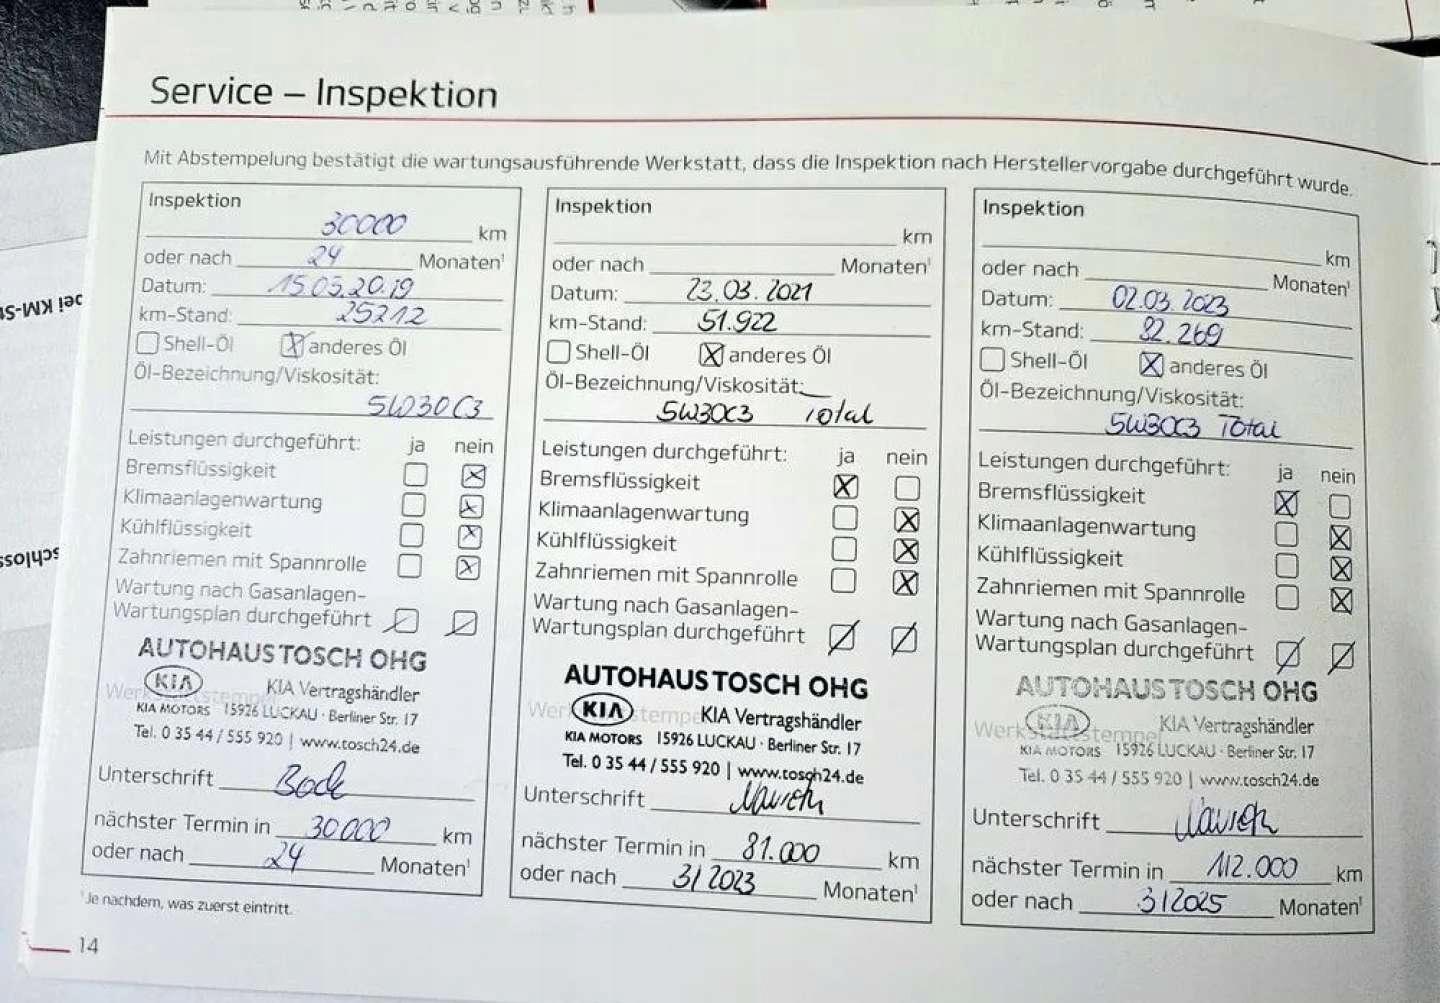 Service – Inspektion
Mit Abstempelung bestätigt die wartungsausführende Werkstatt, dass die Inspektion nach Herstellervorgabe durchgeführt wurde.
Inspektion
30000 km
oder nach 24 Monaten¹
Datum: 15.05.2019
km-Stand: 25212
Shell-Öl X anderes Öl
Öl-Bezeichnung/Viskosität:
5W30C3
Leistungen durchgeführt: ja nein
Bremsflüssigkeit X
Klimaanlagenwartung X
Kühlflüssigkeit X
Zahnriemen mit Spannrolle X
Wartung nach Gasanlagen-
Wartungsplan durchgeführt
AUTOHAUS TOSCH OHG
KIA KIA Vertragshändler
Werkstattstempel
KIA MOTORS 15926 LUCKAU · Berliner Str. 17
Tel. 0 35 44 / 555 920 | www.tosch24.de
Unterschrift Bode
nächster Termin in 30000 km
oder nach 24 Monaten¹
Inspektion
km
oder nach Monaten¹
Datum: 23.03.2021
km-Stand: 51.922
Shell-Öl X anderes Öl
Öl-Bezeichnung/Viskosität:
5W30C3 Total
Leistungen durchgeführt: ja nein
Bremsflüssigkeit X
Klimaanlagenwartung X
Kühlflüssigkeit X
Zahnriemen mit Spannrolle X
Wartung nach Gasanlagen-
Wartungsplan durchgeführt
AUTOHAUS TOSCH OHG
KIA KIA Vertragshändler
Werkstattstempel
KIA MOTORS 15926 LUCKAU · Berliner Str. 17
Tel. 0 35 44 / 555 920 | www.tosch24.de
Unterschrift
nächster Termin in 81.000 km
oder nach 3/2023 Monaten¹
Inspektion
km
oder nach Monaten¹
Datum: 02.03.2023
km-Stand: 82.269
Shell-Öl X anderes Öl
Öl-Bezeichnung/Viskosität:
5W30C3 Total
Leistungen durchgeführt: ja nein
Bremsflüssigkeit X
Klimaanlagenwartung X
Kühlflüssigkeit X
Zahnriemen mit Spannrolle X
Wartung nach Gasanlagen-
Wartungsplan durchgeführt
AUTOHAUS TOSCH OHG
KIA KIA Vertragshändler
Werkstattstempel
KIA MOTORS 15926 LUCKAU · Berliner Str. 17
Tel. 0 35 44 / 555 920 | www.tosch24.de
Unterschrift
nächster Termin in 112.000 km
oder nach 3/2025 Monaten¹
¹Je nachdem, was zuerst eintritt.
14